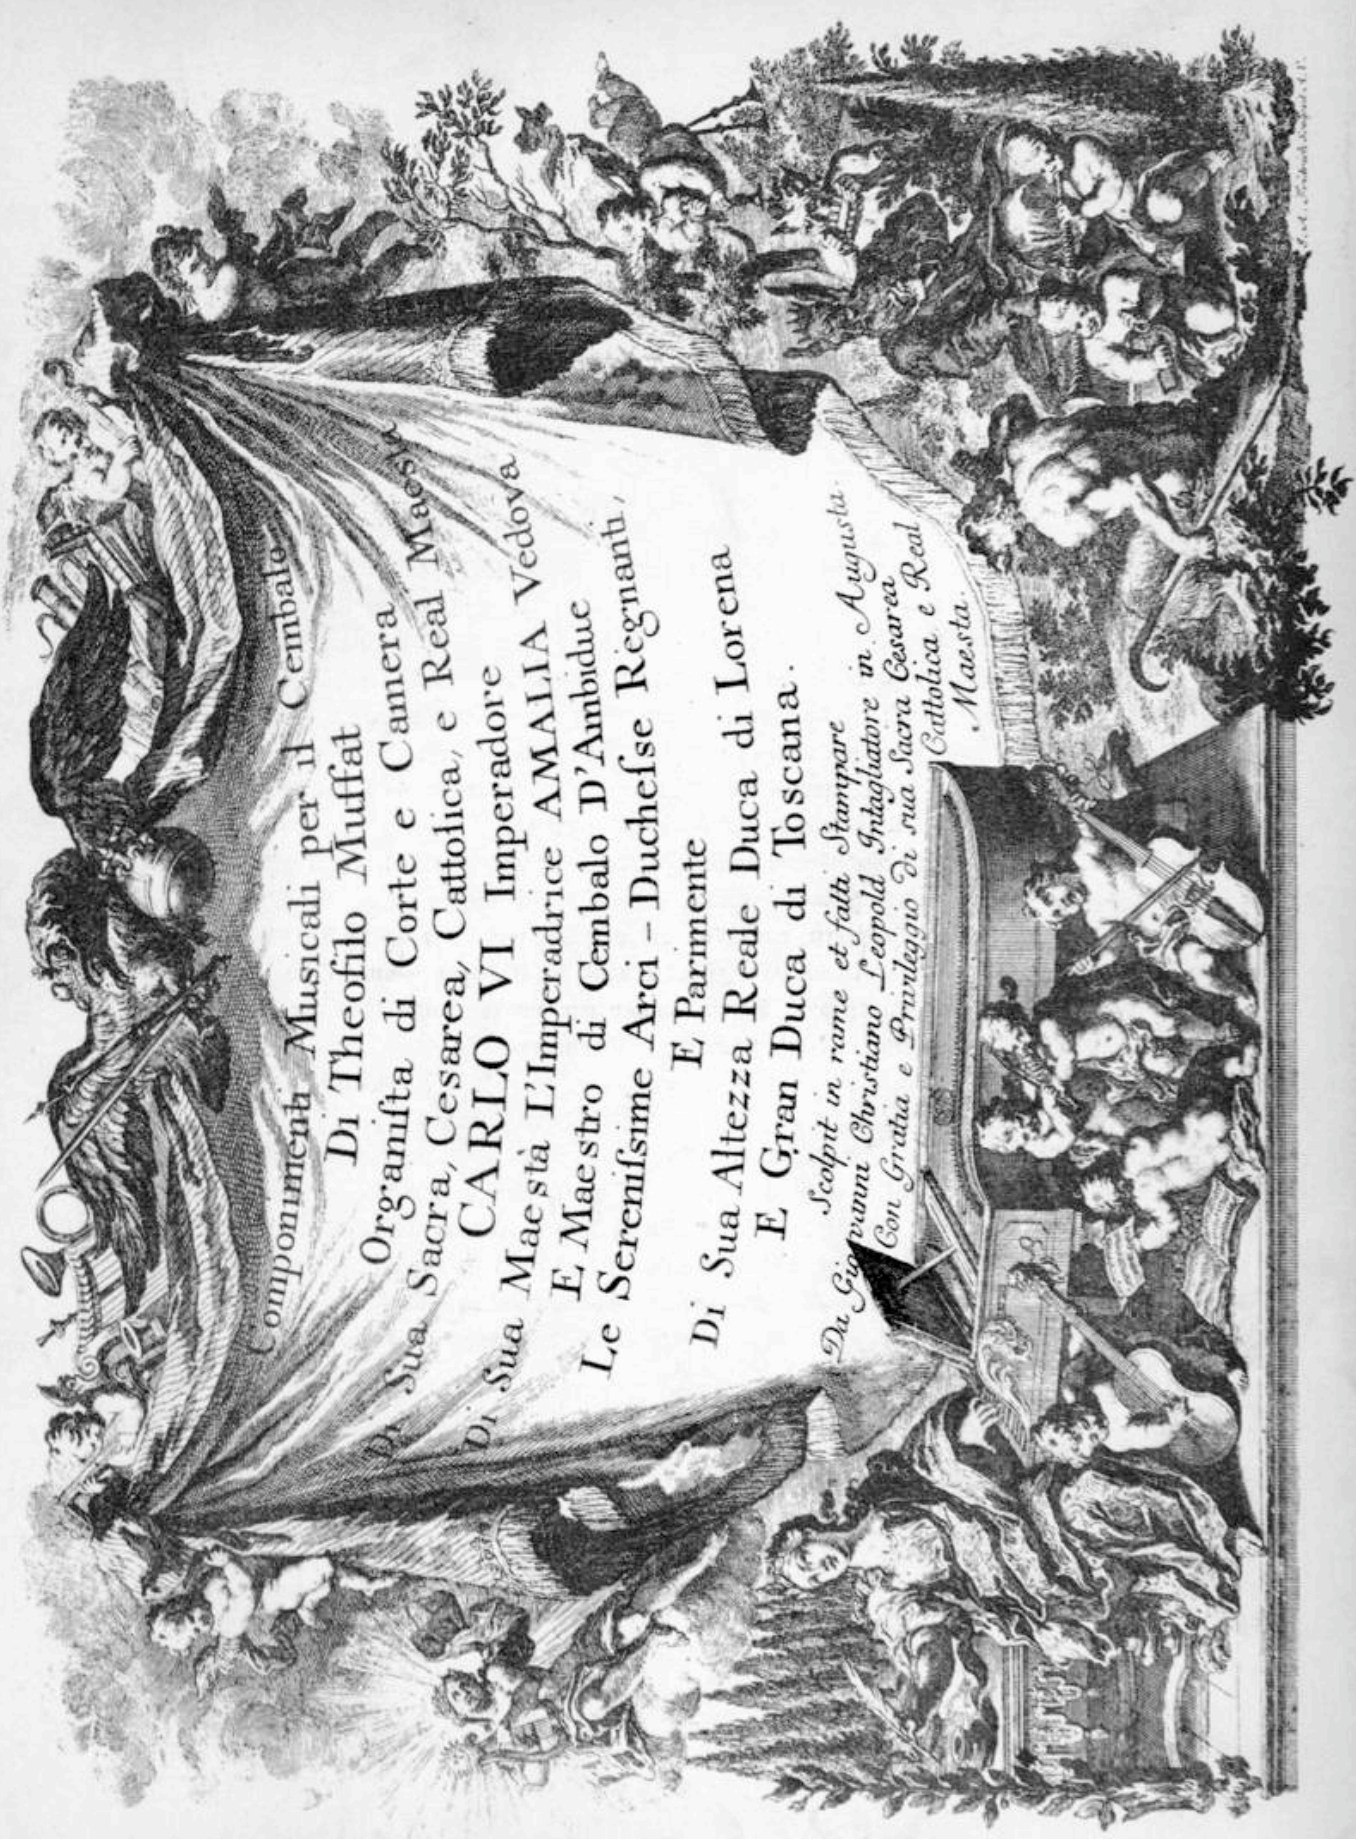 Componimenti Musicali per il Cembalo
Di Theofilo Muffat
Organiſta di Corte e Camera
Di Sua Sacra, Cesarea, Cattolica, e Real Maesta
CARLO VI Imperadore
Di Sua Maestà L'Imperadrice AMALIA Vedova
E Maestro di Cembalo D'Ambidue
Le Sereniſsime Arci-Ducheſse Regnanti,
E Parimente
Di Sua Altezza Reale Duca di Lorena
E Gran Duca di Toscana.
Scolpit in rame et fatti Stampare
Da Giovanni Christiano Leopold Intagliatore in Augusta.
Con Gratia e Privileggio di sua Sacra Cesarea
Cattolica e Real
Maesta.